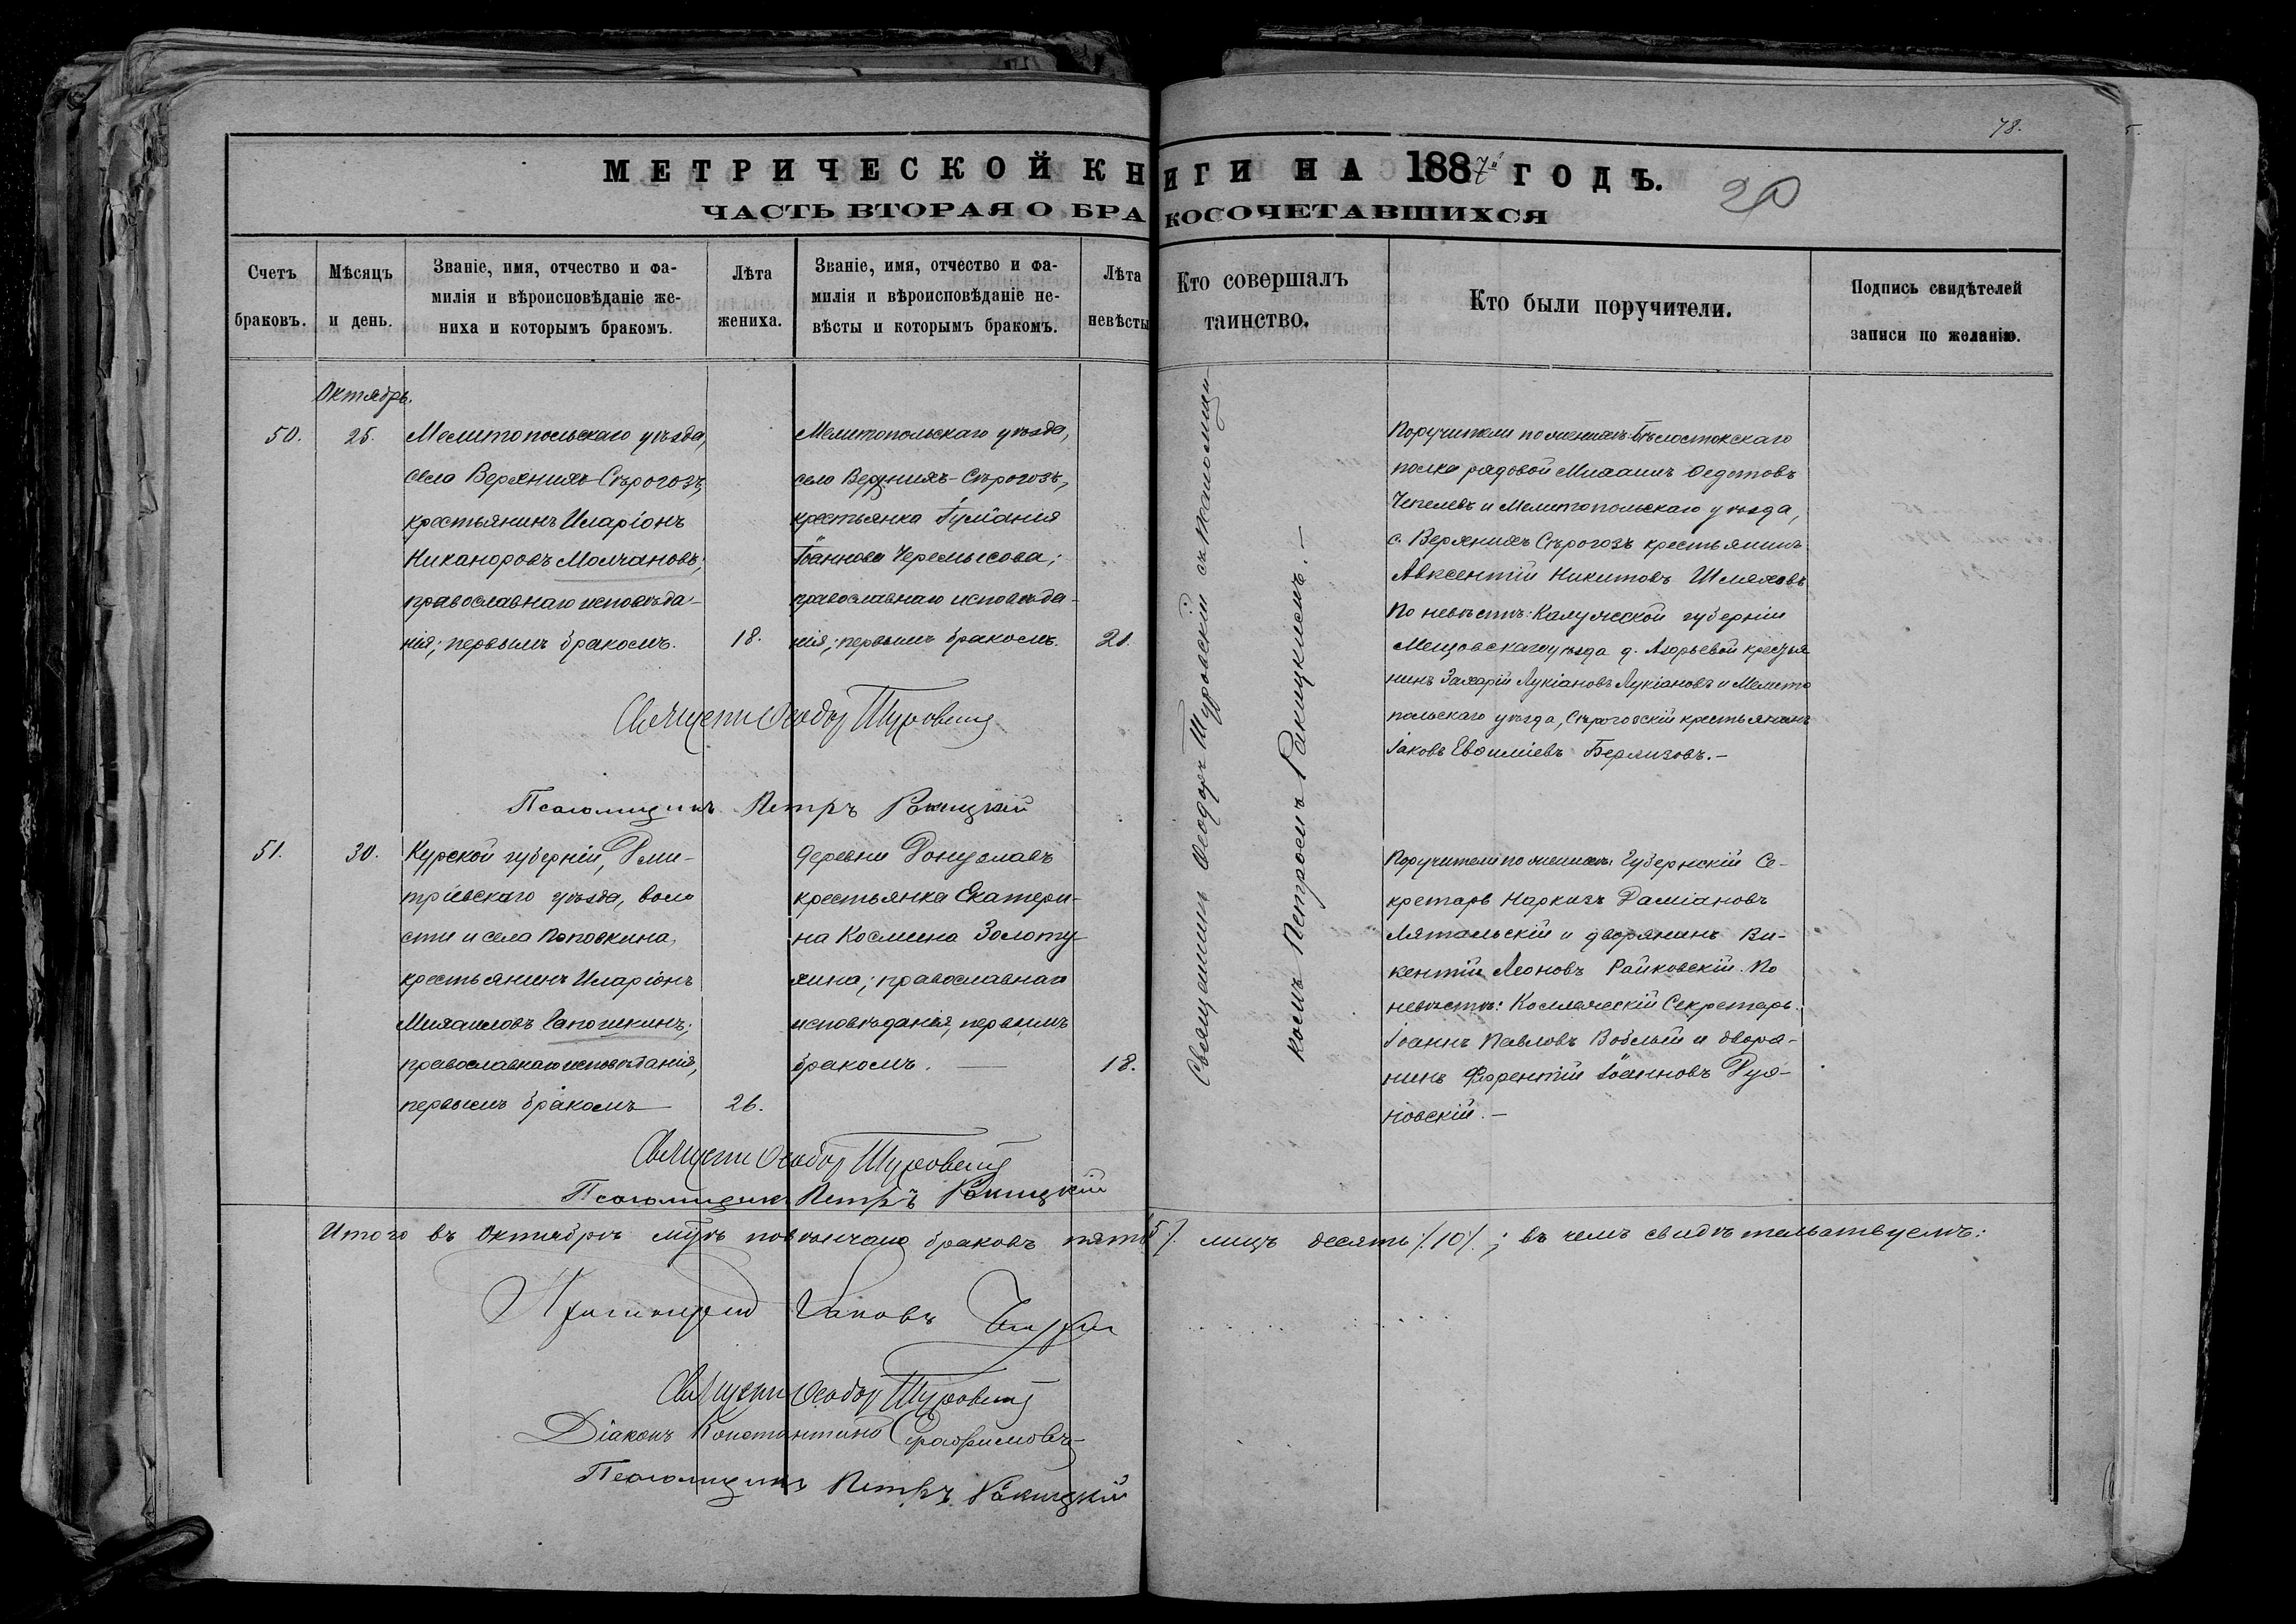 78.
МЕТРИЧЕСКОЙ КНИГИ НА 1887й ГОДЪ.
20
ЧАСТЬ ВТОРАЯ О БРАКОСОЧЕТАВШИХСЯ
Счетъ браковъ.
Мѣсяцъ и день.
Званіе, имя, отчество и фа-
милія и вѣроисповѣданіе же-
ниха и которымъ бракомъ.
Лѣта жениха.
Званіе, имя, отчество и фа-
милія и вѣроисповѣданіе не-
вѣсты и которымъ бракомъ.
Лѣта невѣсты
Кто совершалъ
таинство.
Кто были поручители.
Подпись свидѣтелей
записи по желанію.
Октябрь.
50.
25.
Мелитопольскаго уѣзда,
села Верхнихъ-Сѣрогозъ,
крестьянинъ Иларіонъ
Никаноровъ Молчановъ;
православнаго исповѣда-
нія; первымъ бракомъ.
18.
Мелитопольскаго уѣзда,
села Верхнихъ-Сѣрогозъ,
крестьянка Іуліанія
Іоаннова Черемысова;
православнаго исповѣда-
нія; первымъ бракомъ.
21.
Священникъ Ѳеодоръ Туровскій съ псаломщи-
комъ Петромъ Ракицкимъ.—
Поручители по женихѣ: Бѣлостокскаго
полка рядовой Михаилъ Ѳедотовъ
Чепелевъ и Мелитопольскаго уѣзда,
с. Верхнихъ Сѣрогозъ крестьянинъ
Авксентій Никитовъ Шляховъ
По невѣстѣ: Калужской губерніи
Мещовскаго уѣзда д. крестья
нинъ Захарій Лукіановъ Лукіановъ и Мелито
польскаго уѣзда, Сѣрогозскій крестьянинъ
Іаковъ Евѳиміевъ Берлизовъ.—
Священникъ Ѳеодоръ Туровскій
Псаломщикъ Петръ Ракицкій
51.
30.
Курской губерніи, Дми-
тріевскаго уѣзда, воло
сти и села Поповкина,
крестьянинъ Иларіонъ
Михаиловъ Сапожкинъ;
православнаго исповѣданія,
первымъ бракомъ —
26.
Деревни Донузлавъ
крестьянка Екатери-
на Космина Золоту-
хина; православнаго
исповѣданія, первымъ
бракомъ. —
18.
Поручители по женихѣ: Губернскій Се-
кретарь Наркизъ Даміановъ
Лятальскій и дворянинъ Ви-
кентій Леоновъ Райковскій. По
невѣстѣ: Коллежскій Секретарь
Іоаннъ Павловъ Воблый и дворя-
нинъ Флорентій Іоанновъ
новскій.—
Священникъ Ѳеодоръ Туровскій
Псаломщикъ Петръ Ракицкій
Итого въ Октябрѣ мцѣ повѣнчано браковъ пять /5/. лицъ десять /.10/.; въ чемъ свидѣтельствуемъ:
Протоіерей Іаковъ
Священникъ Ѳеодоръ Туровскій
Діаконъ Константинъ Серафимовъ
Псаломщикъ Петръ Ракицкій